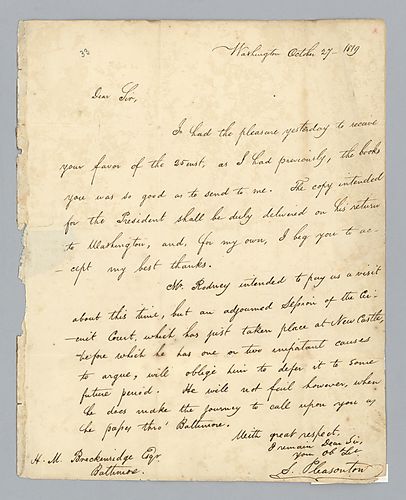 33
Washington October 27 - 1819
Dear Sir,
I had the pleasure yesterday to receive
your favor of the 25 inst, as I had previously, the books
you was so good as to send to me. The copy intended
for the President shall be duly delivered on his return
to Washington, and, for my own, I beg you to ac-
-cept my best thanks.
Mr. Rodney intended to pay us a visit
about this time, but an adjourned Session of the Cir-
-cuit Court, which has just taken place at New Castle,
before which he has one or two important causes
to argue, will oblige him to defer it to some
future period. He will not fail however, when
he does make the journey to call upon you as
he passes thro' Baltimore.
With great respect
I remain Dear Sir,
your Ob Set
S. Pleasonton
H. M. Brackenridge Esqr
Baltimore.